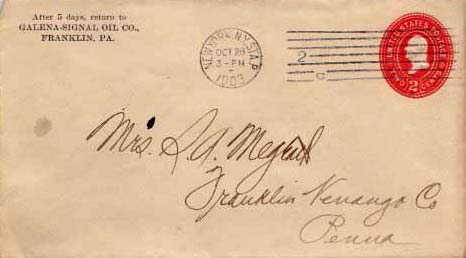 After 5 days, return to
GALENA-SIGNAL OIL CO.,
FRANKLIN, PA.
NEW YORK, N.Y. STA.P
OCT 28
3-PM
1903
2
C
UNITED STATES POSTAGE
TWO 2 CENTS
Mrs.
Franklin Venango Co
Penna